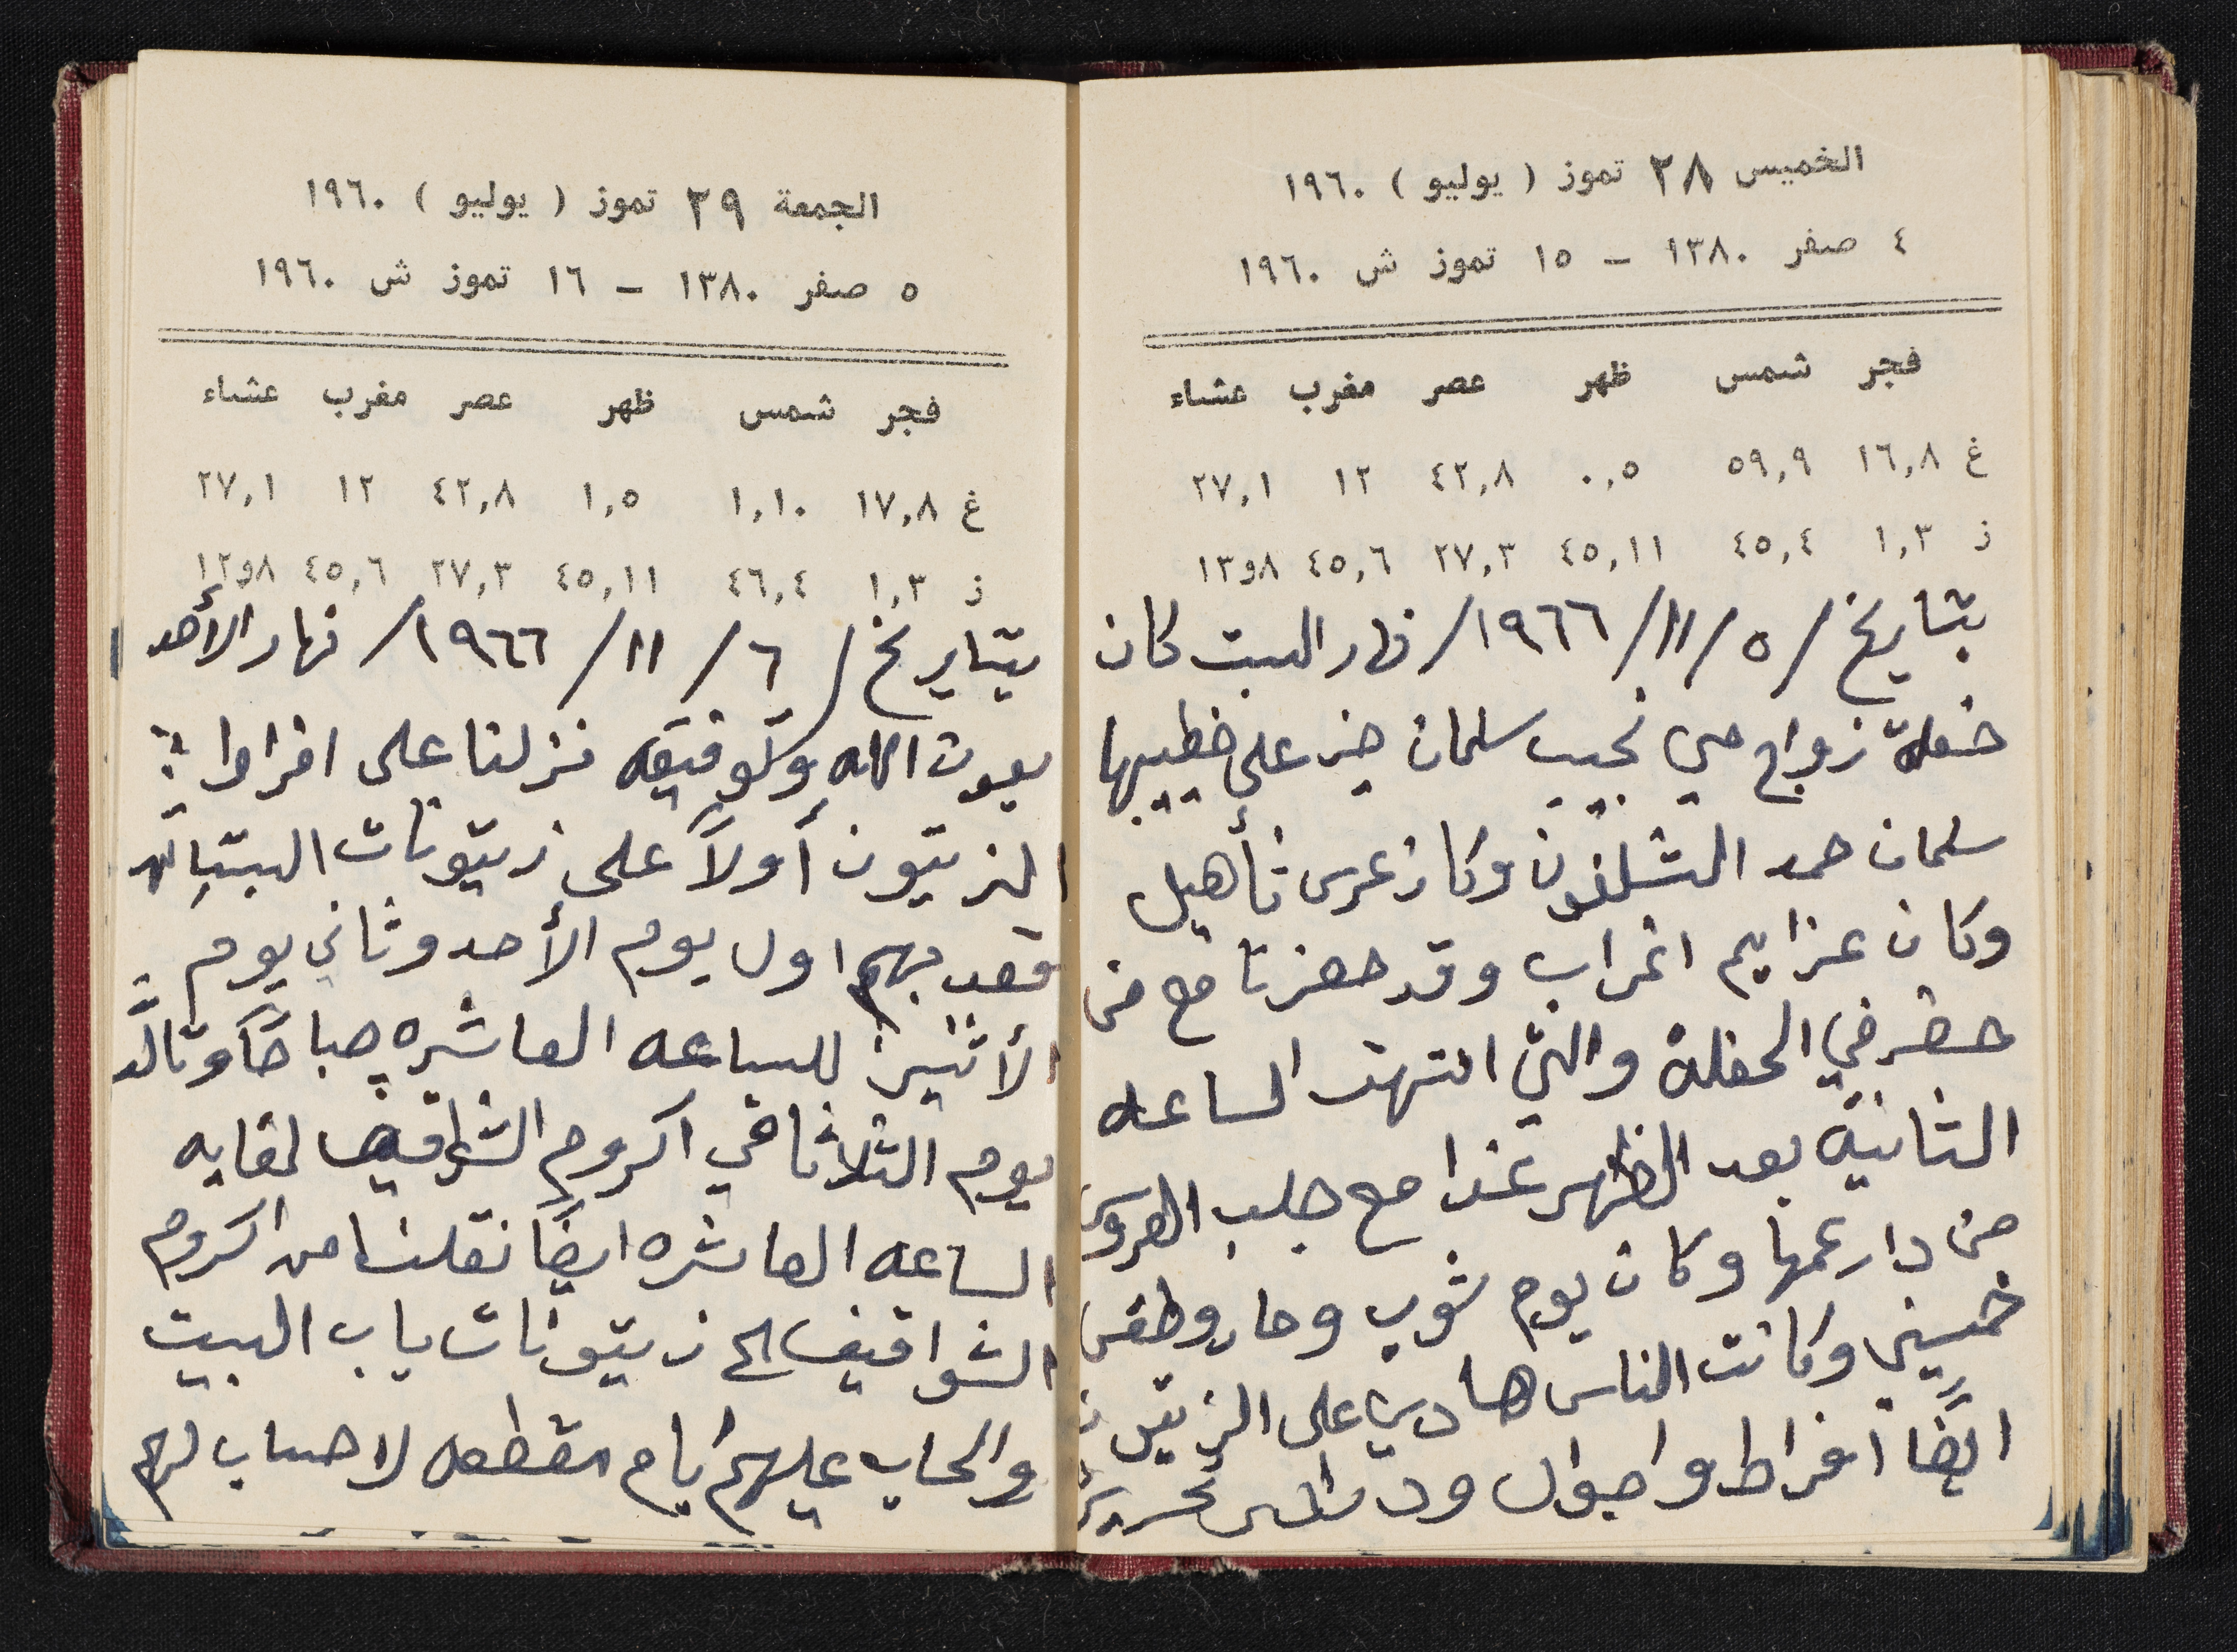 الخميس ٢٨ تموز ( يوليو ) ١٩٦٠
٤ صفر ١٣٨٠ - ١٥ تموز ش ١٩٦٠
فجر شمس ظهر عصر مغرب عشاء
غ ١٦,٨ ٥٩,٩ ٠,٥ ٤٢,٨ ١٢ ٢٧,١
ز ١,٣ ٤٥,٤ ٤٥,١١ ٢٧,٣ ٤٥,٦ ٨و١٣
بتاريخ / ٥ / ١١ / ١٩٦٦ / نهار السبت كان
حفلة زواج مي نجيب سلمان خير على خطيبها
سلمان حمد الشلفون وكان عرس تأهيل
وكان عزايم اغراب وقد حضرنا مع من
حضر في الحفلة والتي انتهت الساعه
الثانية بعد الظهر غدا مع جلب العروس
من دار عمها وكان يوم شوب وحار وطقس
خمسيني وكانت الناس هادي على الزيتون
ايضاً افراط واجوال
الجمعة ٢٩ تموز ( يوليو ) ١٩٦٠
٥ صفر ١٣٨٠ - ١٦ تموز ش ١٩٦٠
فجر شمس ظهر عصر مغرب عشاء
غ ١٧,٨ ١,١٠ ١,٥ ٤٢,٨ ١٢ ٢٧,١
ز ١,٣ ٤٦,٤ ٤٥,١١ ٢٧,٣ ٤٥,٦ ٨و١٢
بتاريخ / ٦ / ١١ / ١٩٦٦ / نهار الأحد
بعون الله وتوفيقه نزلنا على افراط
الزيتون أولاً على زيتونات
فعد بهم اول يوم الأحد وثاني يوم
الأثنين للساعه العاشره صباحاً وتالت
يوم الثلاثا في اكروم الشواقيف لغايه
الساعه العاشره ايضاً نقلنا من اكروم
الشواقيف الى زيتونات باب البيت
والحاب عليهم أيام مقطعه لا حساب لهم